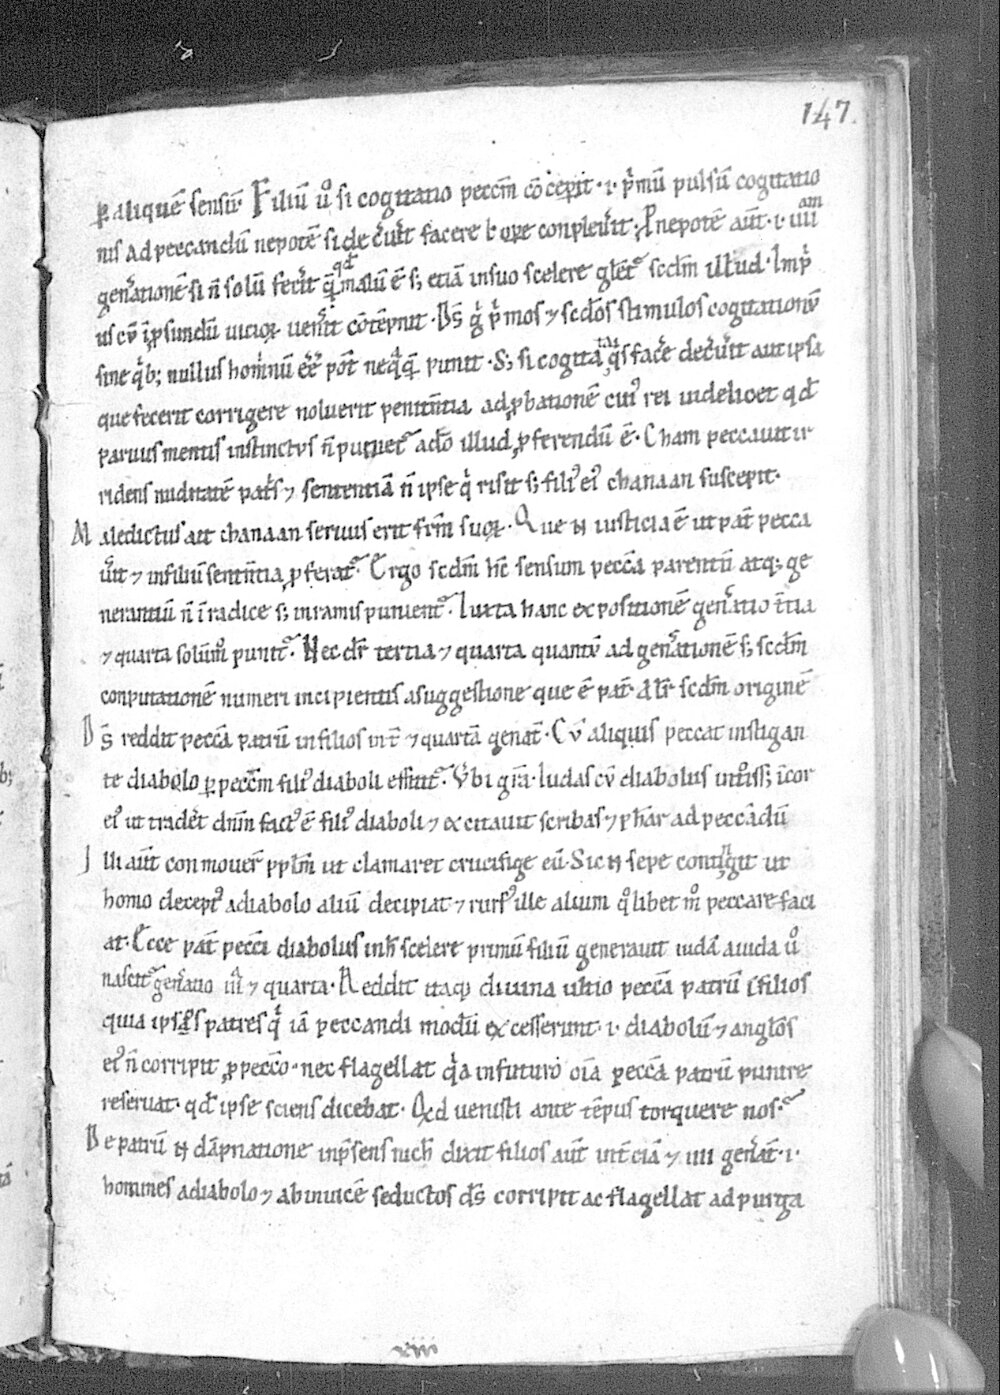 147.
ꝑ aliquē sensū. Filiū ů si cogitatio peccm̄ cōcepit .i. p̍mū pulsū cogitatio
nis ad peccandū nepotē si decͥuit facere ł oꝑe conpleuͥit; Pnepotē aūt .i. iiii am
gen̍ationē si n̄ solū fecit qd̄ malū ē s; etiā in suo scelere gł̄etᷣ scdm̄ illud. Imp̍
us cū ī ꝓfundū uicioꝝ uen̍it cōtēpnit. Dſ̄ g̍ p̍mos ⁊ scdōs stimulos cogitationū
sine qͥb; nullus hominū ēē pōt neqͣqͣ punit. S; si cogitata qͥs fac̄e decͥuit aut ipsa
que fecerit corrigere noluerit penitn̄tia ad ꝓbationē cuiꝰ rei uidelicet qd̄
paruus mentis instinctus n̄ putetᷣ ad dō illud ꝓferendū ē. Cham peccauit ir
ridens nuditatē patͥs ⁊ sententiā n̄ ipse qͥ risit s; filiꝰ eiꝰ chanaan suscepit.
Maledictus ait chanaan seruus erit frm̄ suoꝝ. Que n̄ iusticia ē ut pat̄ pecca
uͥit ⁊ in filiū sentn̄tia ꝓferatᷣ. Ergo scdm̄ hc̄ sensum peccā parentū atq; ge
nerantiū n̄ ī radice s; in ramis punientᷣ. Iuxta hanc expositionē gen̍atio t̄tia
⁊ quarta solūm̊ punitᷣ. Nec dr̄ tertia ⁊ quarta quantū ad gen̍ationē s; scdm̄
conputationē numeri incipientis a suggestione que ē pat̄. Alr̄ scdm̄ originē
Dſ̄ reddit peccā patrū in filios in t̄ ⁊ quartā genat̄. Cū aliquis peccat instigan
te diabolo ꝑ peccm̄ filiꝰ diaboli efficitᷣ. Vbi gr̄a. Iudas cū diabolus int̊iss; ī cor
eiꝰ ut tradēt dnm̄ factꝰ ē filiꝰ diaboli ⁊ excitauit scribas ⁊ phār ad peccādū
Illi aūt conmouer̄ pplm̄ ut clamaret crucifige eū. Sic n̄ sepe contingit ut
homo deceptꝰ a diabolo aliū decipiat ⁊ rursꝰ ille alium q̊libet m̊ peccare faci
at. Ecce pat̄ pecci diabolus in h̄ scelere primū filiū generauit iudā a iuda ů
nascitᷣ gen̍atio iii ⁊ quarta. Reddit itaq; diuina ultio peccā patrū ī filios
quia ipsos patres qͥ iā peccandi modū excesserunt .i. diabolū ⁊ anglōs
eiꝰ n̄ corripit ꝓ peccō. nec flagellat qͥa in futuro oīa peccā patrū punire
reseruat. qd̄ ipse sciens dicebat. Qd uenisti ante tēpus torquere nos.
De patrū n̄ dāpnatione in p̄sens nich̄ dixit filios aūt in t̄ciā ⁊ iiii gen̍at̄ .i.
homines a diabolo ⁊ ab inuicē seductos dſ̄ corripit ac flagellat ad purga
xiii